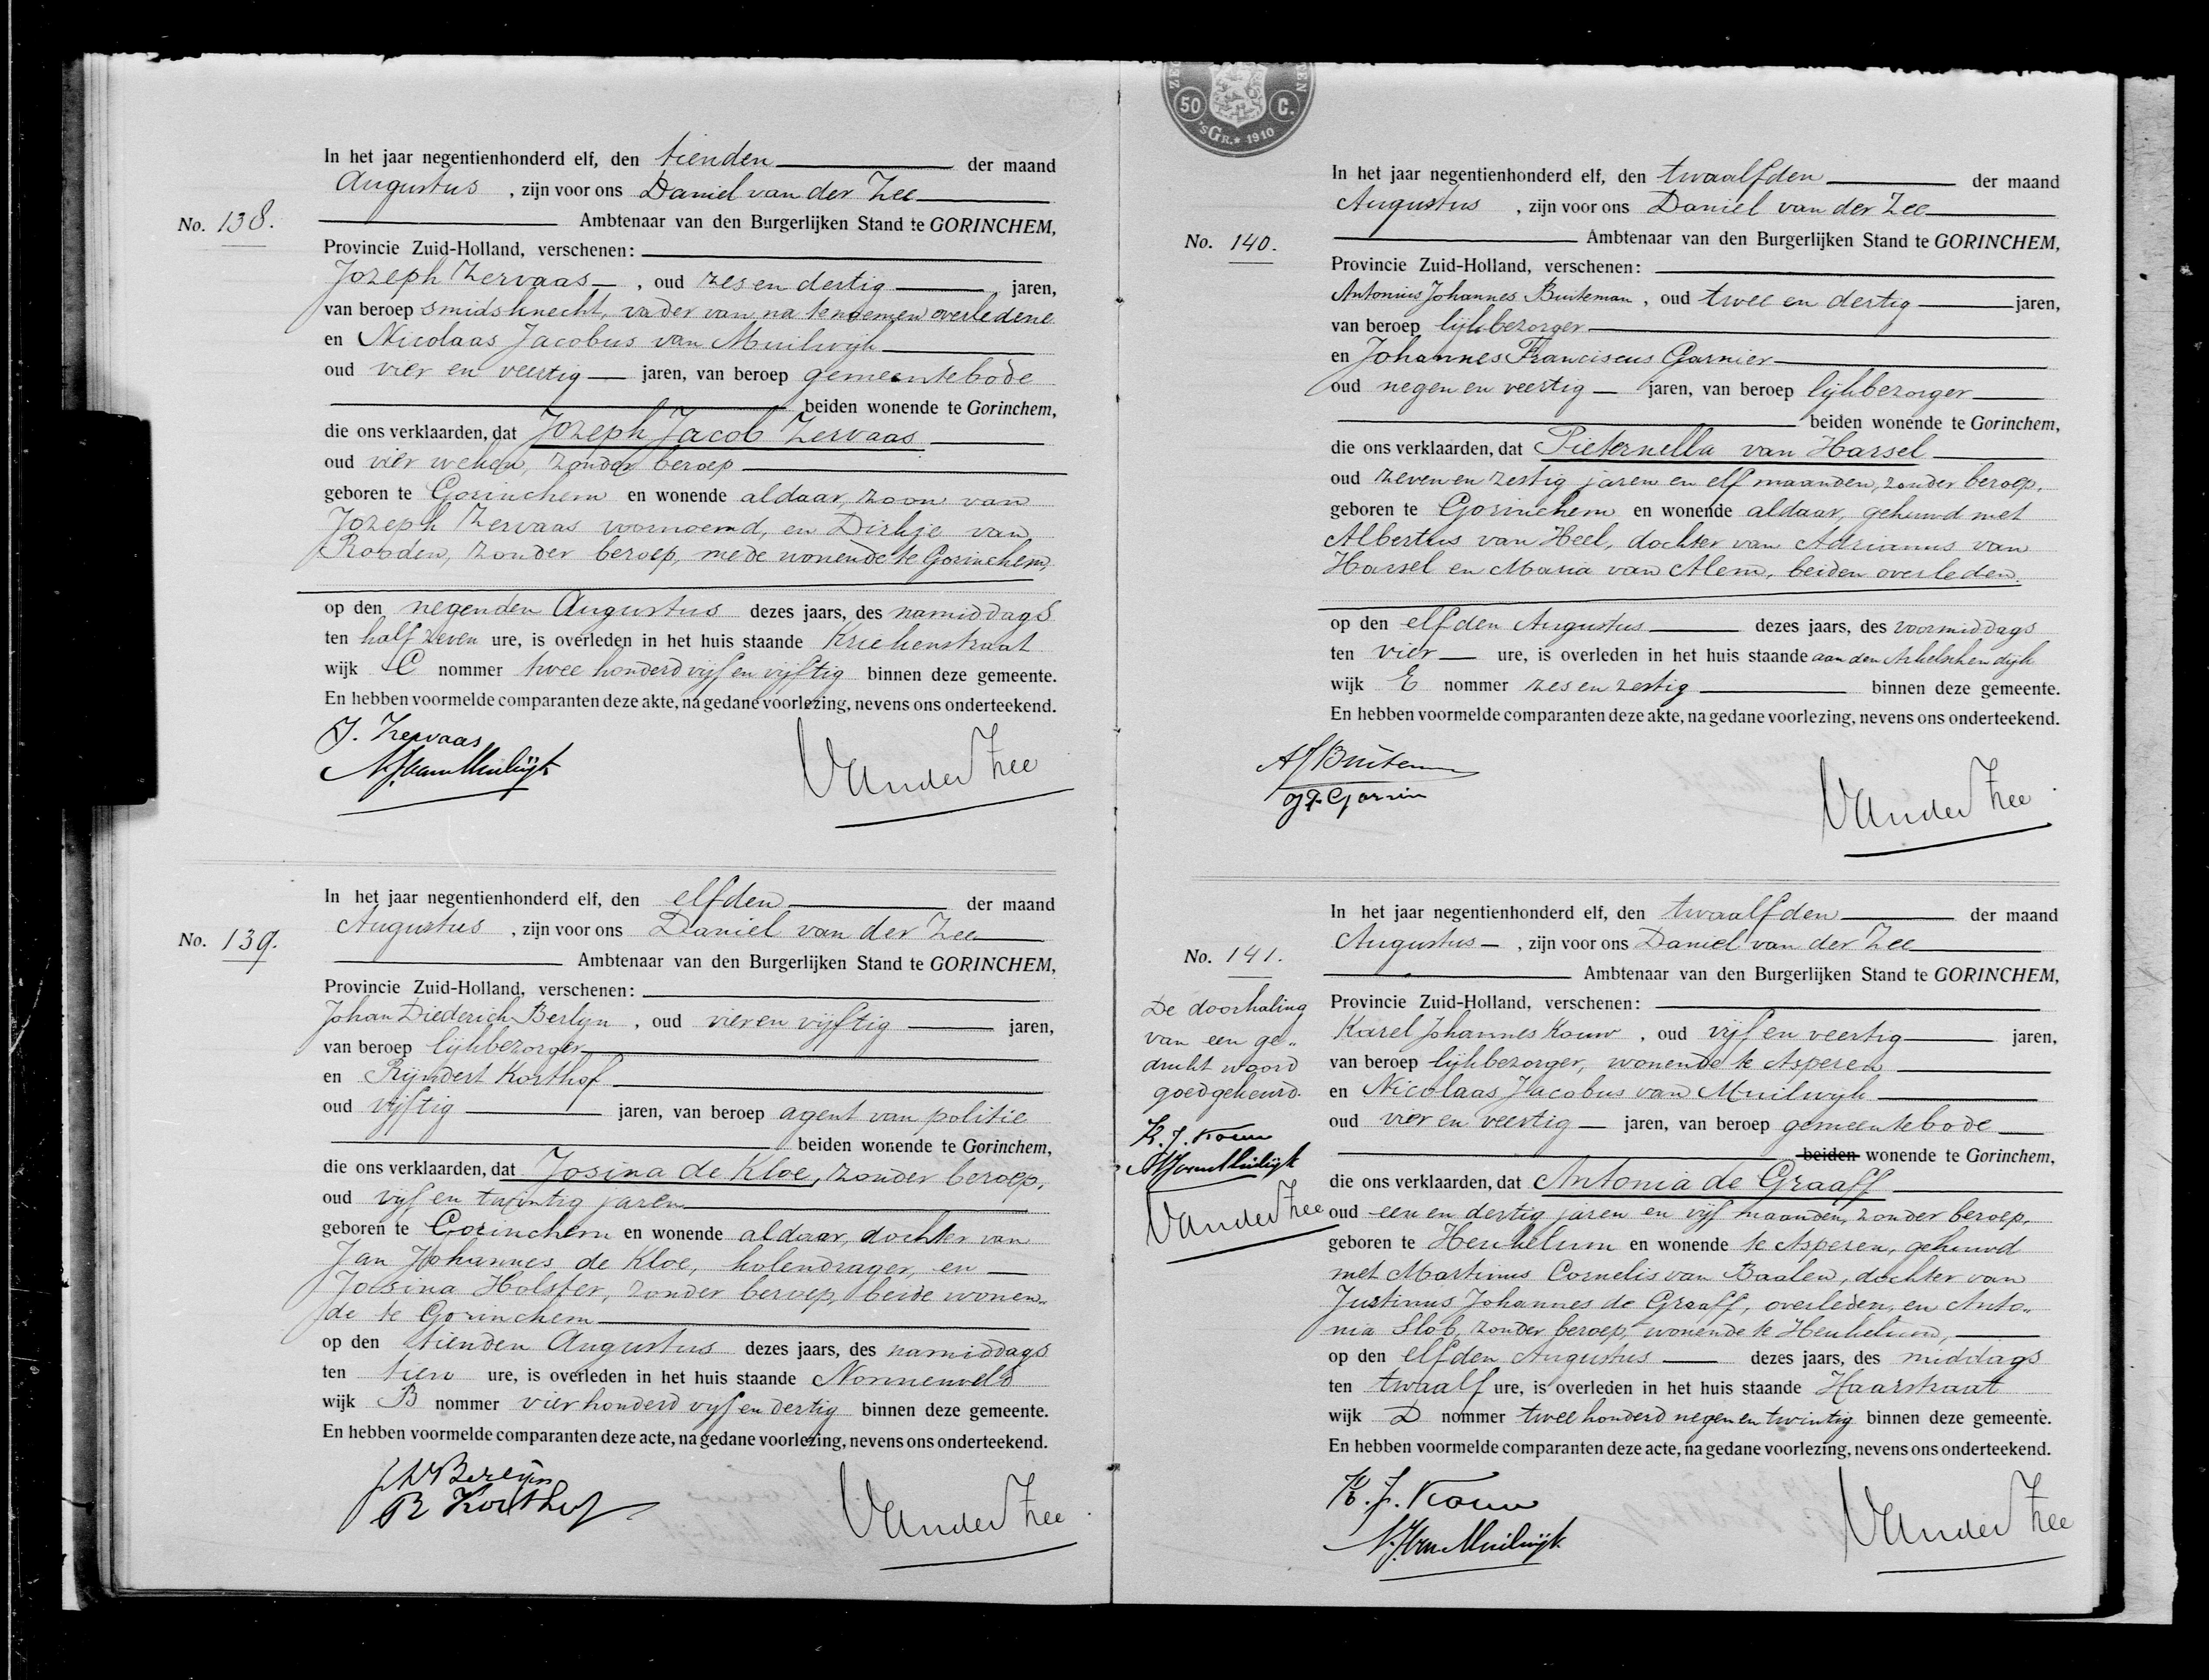 In het jaar negentienhonderd elf, den tienden der maand
Augustus, zijn voor ons Daniel van der Zee
No. 138.
Ambtenaar van den Burgerlijken Stand te GORINCHEM,
Provincie Zuid-Holland, verschenen:
Jozeph Zervaas, oud zes en dertig jaren,
van beroep smidsknecht, vader van na tenoemen overledene
en Nicolaas Jacobus van Muilwijk
oud vier en veertig jaren, van beroep gemeentebode
beiden wonende te Gorinchem,
die ons verklaarden, dat Jozeph Jacob Zervaas
oud vier weken, zonder beroep
geboren te Gorinchem en wonende aldaar, zoon van
Jozeph Zervaas voornoemd, en Dirkje van
Rooden, zonder beroep, mede wonende te Gorinchem,
op den negenden Augustus dezes jaars, des namiddags
ten half zeven ure, is overleden in het huis staande Kriekenstraat
wijk C nommer twee honderd vijf en vijftig binnen deze gemeente.
En hebben voormelde comparanten deze akte, na gedane voorlezing, nevens ons onderteekend.
J. Zervaas
N.J. van Muilwijk
Vander Zee
In het jaar negentienhonderd elf, den elfden der maand
Augustus, zijn voor ons Daniel van der Zee
No. 139.
Ambtenaar van den Burgerlijken Stand te GORINCHEM,
Provincie Zuid-Holland, verschenen:
Johan Diederich Berlijn, oud vier en vijftig jaren,
van beroep lijkbezorger
en Rijndert Korthof
oud vijftig jaren, van beroep agent van politie
beiden wonende te Gorinchem,
die ons verklaarden, dat Josina de Kloe, zonder beroep,
oud vijf en twintig jaren
geboren te Gorinchem en wonende aldaar, dochter van
Jan Johannes de Kloe, kolendrager, en
Josina Holster, zonder beroep, beide wonen„
de te Gorinchem
op den tienden Augustus dezes jaars, des namiddags
ten tien ure, is overleden in het huis staande Nonnenveld
wijk B nommer vierhonderd vijf en dertig binnen deze gemeente.
En hebben voormelde comparanten deze acte, na gedane voorlezing, nevens ons onderteekend.
J D Berlijn
R Korthof
Vander Zee
ZEGEL
50 C.
'SGR. * 1910
In het jaar negentienhonderd elf, den twaalfden der maand
Augustus, zijn voor ons Daniel van der Zee
No. 140.
Ambtenaar van den Burgerlijken Stand te GORINCHEM,
Provincie Zuid-Holland, verschenen:
Antonius Johannes Buiteman, oud twee en dertig jaren,
van beroep lijkbezorger
en Johannes Franciscus Garnier
oud negen en veertig jaren, van beroep lijkbezorger
beiden wonende te Gorinchem,
die ons verklaarden, dat Pieternella van Hassel
oud zeven en zestig jaren en elf maanden, zonder beroep,
geboren te Gorinchem en wonende aldaar, gehuwd met
Albertus van Heel, dochter van Adrianus van
Hassel en Maria van Alem, beiden overleden,
op den elfden Augustus dezes jaars, des voormiddags
ten vier ure, is overleden in het huis staande aan den Arkelschen dijk
wijk E nommer zes en zestig binnen deze gemeente.
En hebben voormelde comparanten deze akte, na gedane voorlezing, nevens ons onderteekend.
Vander Zee
In het jaar negentienhonderd elf, den twaalfden der maand
Augustus, zijn voor ons Daniel van der Zee
No. 141.
Ambtenaar van den Burgerlijken Stand te GORINCHEM,
Provincie Zuid-Holland, verschenen:
Karel Johannes Kouw, oud vijf en veertig jaren,
van beroep lijkbezorger, wonende te Asperen
en Nicolaas Jacobus van Muilwijk
oud vier en veertig jaren, van beroep gemeentebode
beiden wonende te Gorinchem,
die ons verklaarden, dat Antonia de Graaff
oud een en dertig jaren en vijf maanden, zonder beroep,
geboren te Heukelum en wonende te Asperen, gehuwd
met Martinus Cornelis van Baalen, dochter van
Justinus Johannes de Graaff, overleden, en Anto„
nia Slob, zonder beroep, wonende te Heukelum,
op den elfden Augustus dezes jaars, des middags
ten twaalf ure, is overleden in het huis staande Haarstraat
wijk D nommer twee honderd negen en twintig binnen deze gemeente.
En hebben voormelde comparanten deze acte, na gedane voorlezing, nevens ons onderteekend.
K. J. Kouw
N.J. van Muilwijk
Vander Zee
De doorhaling
van een ge„
drukt woord
goedgekeurd.
K. J. Kouw
N.J. van Muilwijk
Vander Zee